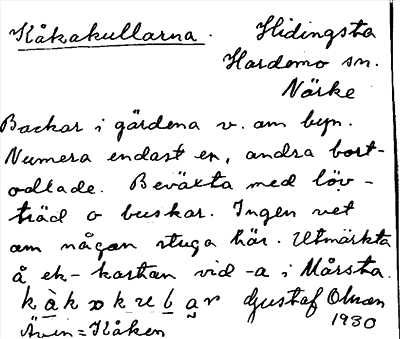 Kåkakullarna. Hidingsta
Hardemo sn.
Närke
Backar i gärdena v. om byn.
Numera endast en, andra bort-
odlade. Beväxta med löv-
träd o buskar. Ingen vet
om någon stuga här. Utmärkta
å ek-kartan vid -a i Mårsta.
k à k x k u b a r Gustaf Olsson
Även = Kåken 1930